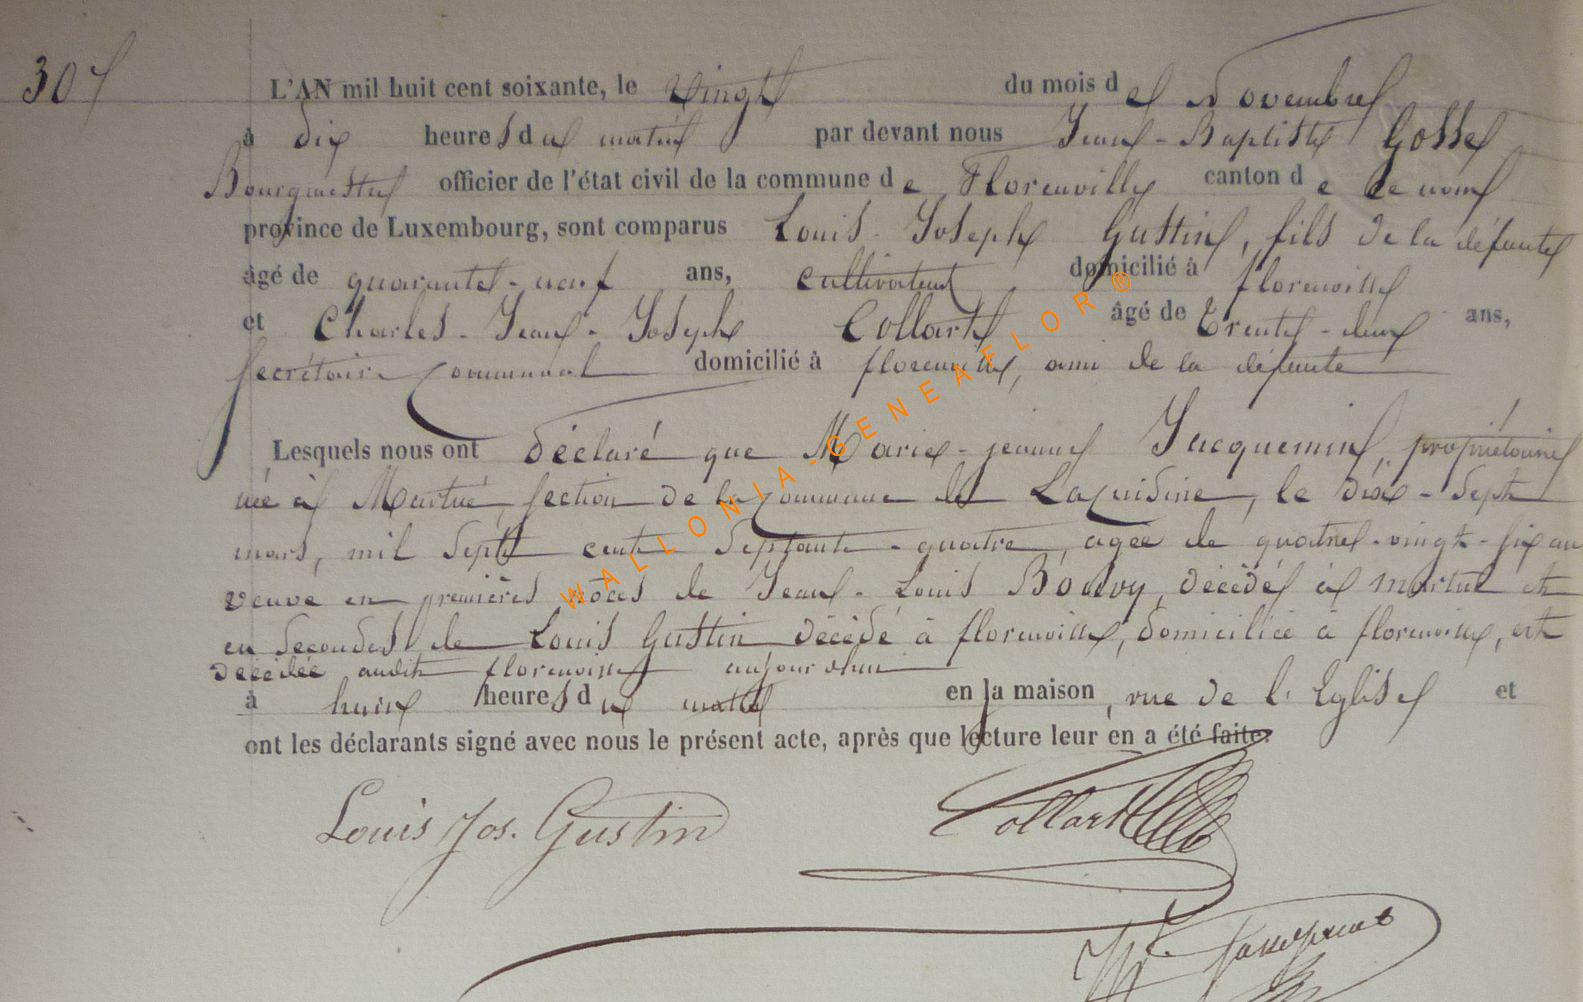 307
L'AN mil huit cent soixante, le vingt du mois de Novembre
à dix heures du matin par devant nous Jean-Baptiste Gosse
Bourgmestre officier de l'état civil de la commune de Florenville canton de ce nom
province de Luxembourg, sont comparus Louis-Joseph Gustin, fils de la défunte
âgé de quarante-neuf ans, cultivateur domicilié à florenville
et Charles-Jean-Joseph Collart âgé de trente-deux ans,
secrétaire communal domicilié à florenville, ami de la défunte
Lesquels nous ont déclaré que Marie-jeanne Jacquemin, propriétaire
née à Martué, section de la commune de Lacuisine, le dix-sept
mars, mil sept cent septante-quatre, agée de quatre-vingt-six ans
veuve en premières noces de Jean-Louis Bouvy, décédé à martué et
en secondes de Louis Gustin décédé à florenville, domiciliée à florenville, est
décédée audit florenville aujourdhui
à huit heures du matin en la maison, rue de l'Eglise et
ont les déclarants signé avec nous le présent acte, après que lecture leur en a été faite.
Louis Jos. Gustin Collart
WALLONIA-GENEAFLOR®